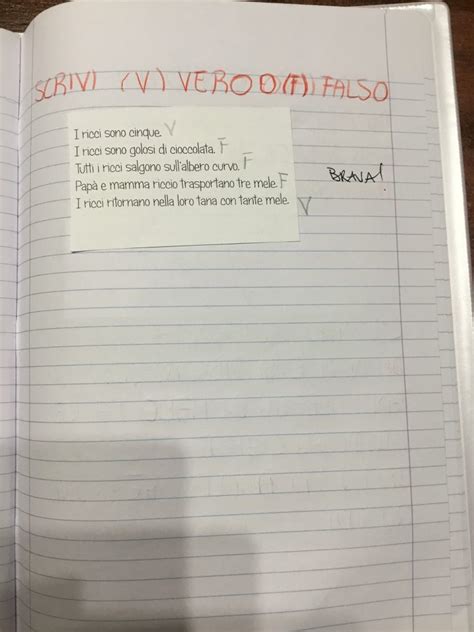 SCRIVI (V) VERO O (F) FALSO
I ricci sono cinque. V
I ricci sono golosi di cioccolata. F
Tutti i ricci salgono sull'albero curvo. F
Papà e mamma riccio trasportano tre mele. F
BRAVA!
I ricci ritornano nella loro tana con tante mele. V